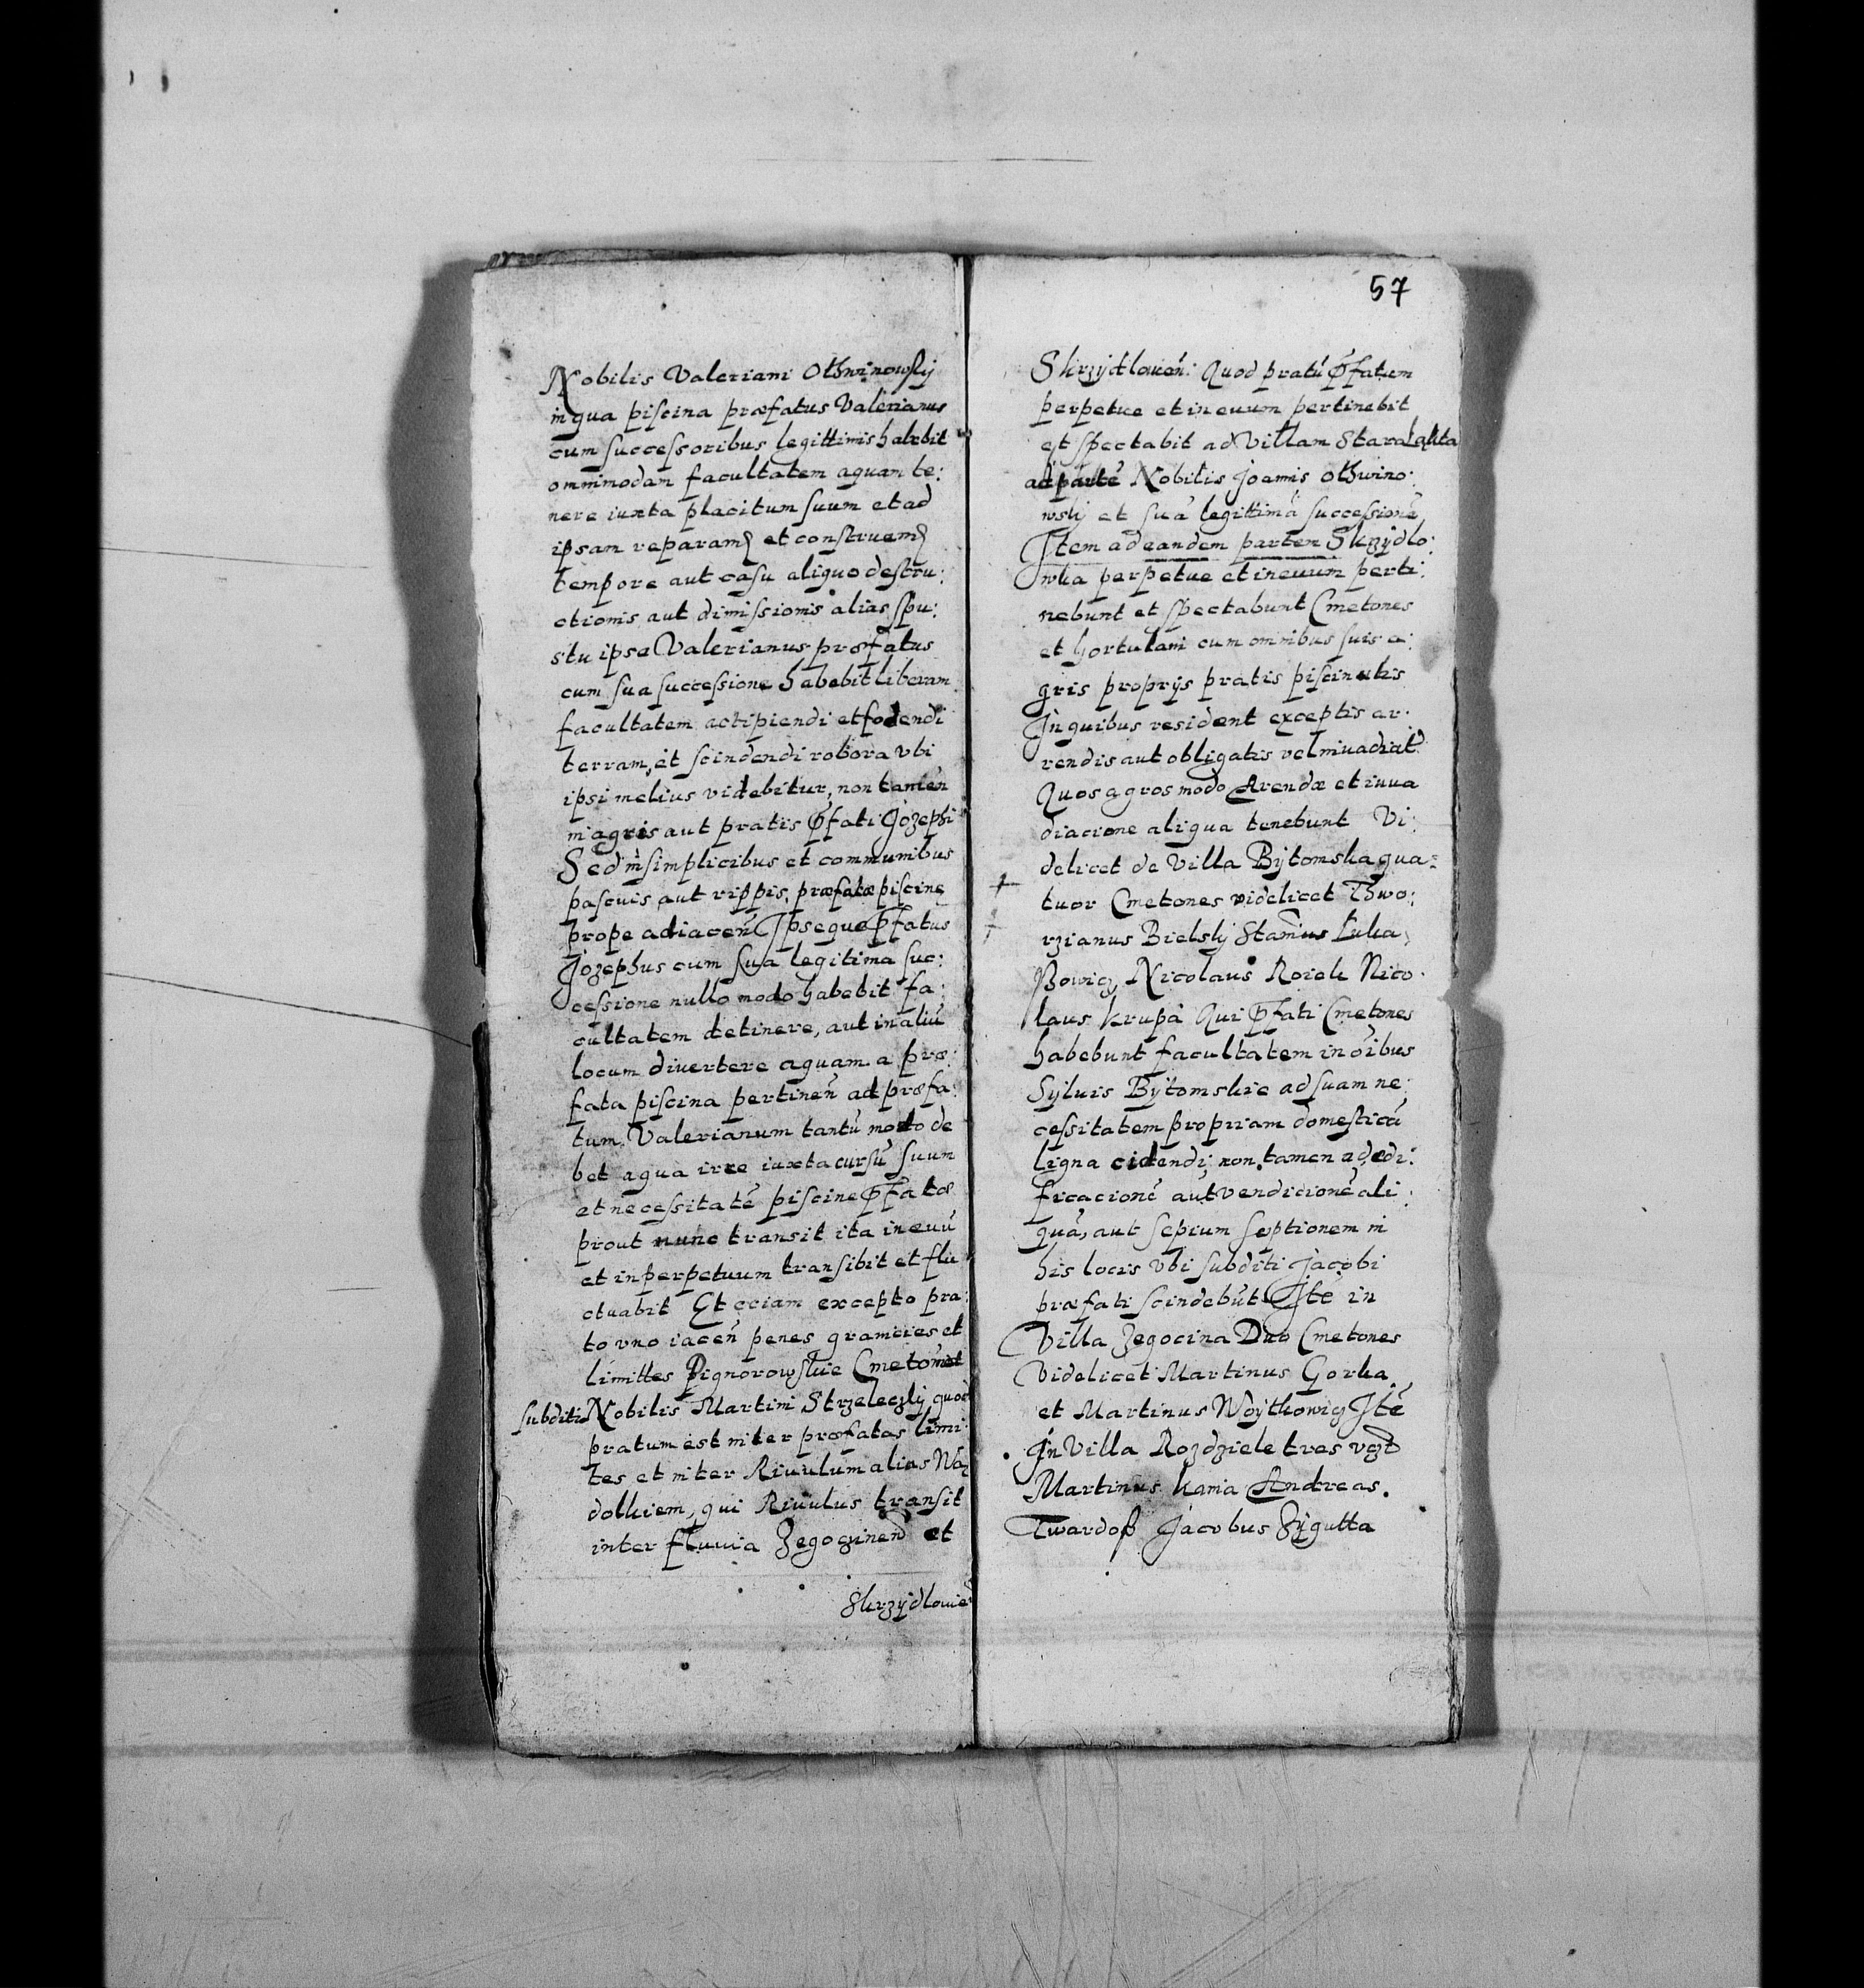 Nobilis Valeriani Othwinowskij
in qua piscina præfatus Valerianus
cum successoribus legittimis habebit
omnimodam facultatem aquam te:
nere iuxta placitum suum et ad
ipsam reparamd et construemd
tempore aut casu aliquo destru:
ctionis aut dimissionis alias spu:
stu ipse Valerianus præfatus
cum sua successione habebit liberam
facultatem accipiendi et fodendi
terram, et scindendi robora vbi
ipsi melius videbitur, non tamen
in agris aut pratis pfati Jozephi
Sed in simplicibus et communibus
pascuis aut rippis, præfatæ piscine
prope adiaceń Ipseque pfatus
Jozephus cum sua legitima suc:
cessione nullo modo habebit fa:
cultatem detinere, aut in aliū
locum divertere aquam a præ:
fata piscina pertineń ad præfa:
tum Valerianum tantū modo de
bet aqua irre iuxta cursū suum
et necessitatē piscine pfatæ
prout nunc transit ita in euū
et in perpetuum transibit et flu
ctuabit Et eciam excepto pra:
to vno iaceń penes granicies et
limittes Pignorowskie Cmetonis
subditi Nobilis Martini Strzeleczkij quod
pratum est inter præfatas limi:
tes et inter Riuulum alias Wą
dolkiem, qui Riuulus transit
inter fluuia Zegoczineń et
Skrzydlowień
57
Skrzÿdloueń: Quod pratū pfatum
perpetue et in euum pertinebit
et spectabit ad Villam Stara Ląkta
ad partē Nobilis Joannis Othwino:
wskij et suā legittimā successionē
Item ad eandem partem Skrzÿdlo:
wka perpetue et in euum perti:
nebunt et spectabunt Cmetones
et hortulani cum omnibus suis a:
gris proprÿs pratis piscinulis
In quibus resident exceptis ar:
rendis aut obligatis vel inuadiatd
Quos agros modo Arendæ et inua
diacione aliqua tenebunt Vi:
delicet de Villa Bÿtomska qua:
tuor Cmetones videlicet Thwo:
rzianus Bielskj Stānius Luka
Bowicz Nicolaus Roiek Nico:
laus Krupa Qui pfati Cmetones
habebunt facultatem in oībus
Syluis Bÿtomskie ad suam ne:
cessitatem propriam domesticā
ligna cidendi, non tamen ad edi:
ficacionē aut vendicionē ali:
quā, aut sepium septionem in
his locis vbi subditi Jacobi
præfati scindebūt Itē in
Villa Zegocina Duo Cmetones
Videlicet Martinus Gorka
et Martinus Woÿtkowicz Itē
In Villa Rozdziele tres vczd
Martinus Kania Andreas
Twardoß Jacobus Zÿgulta